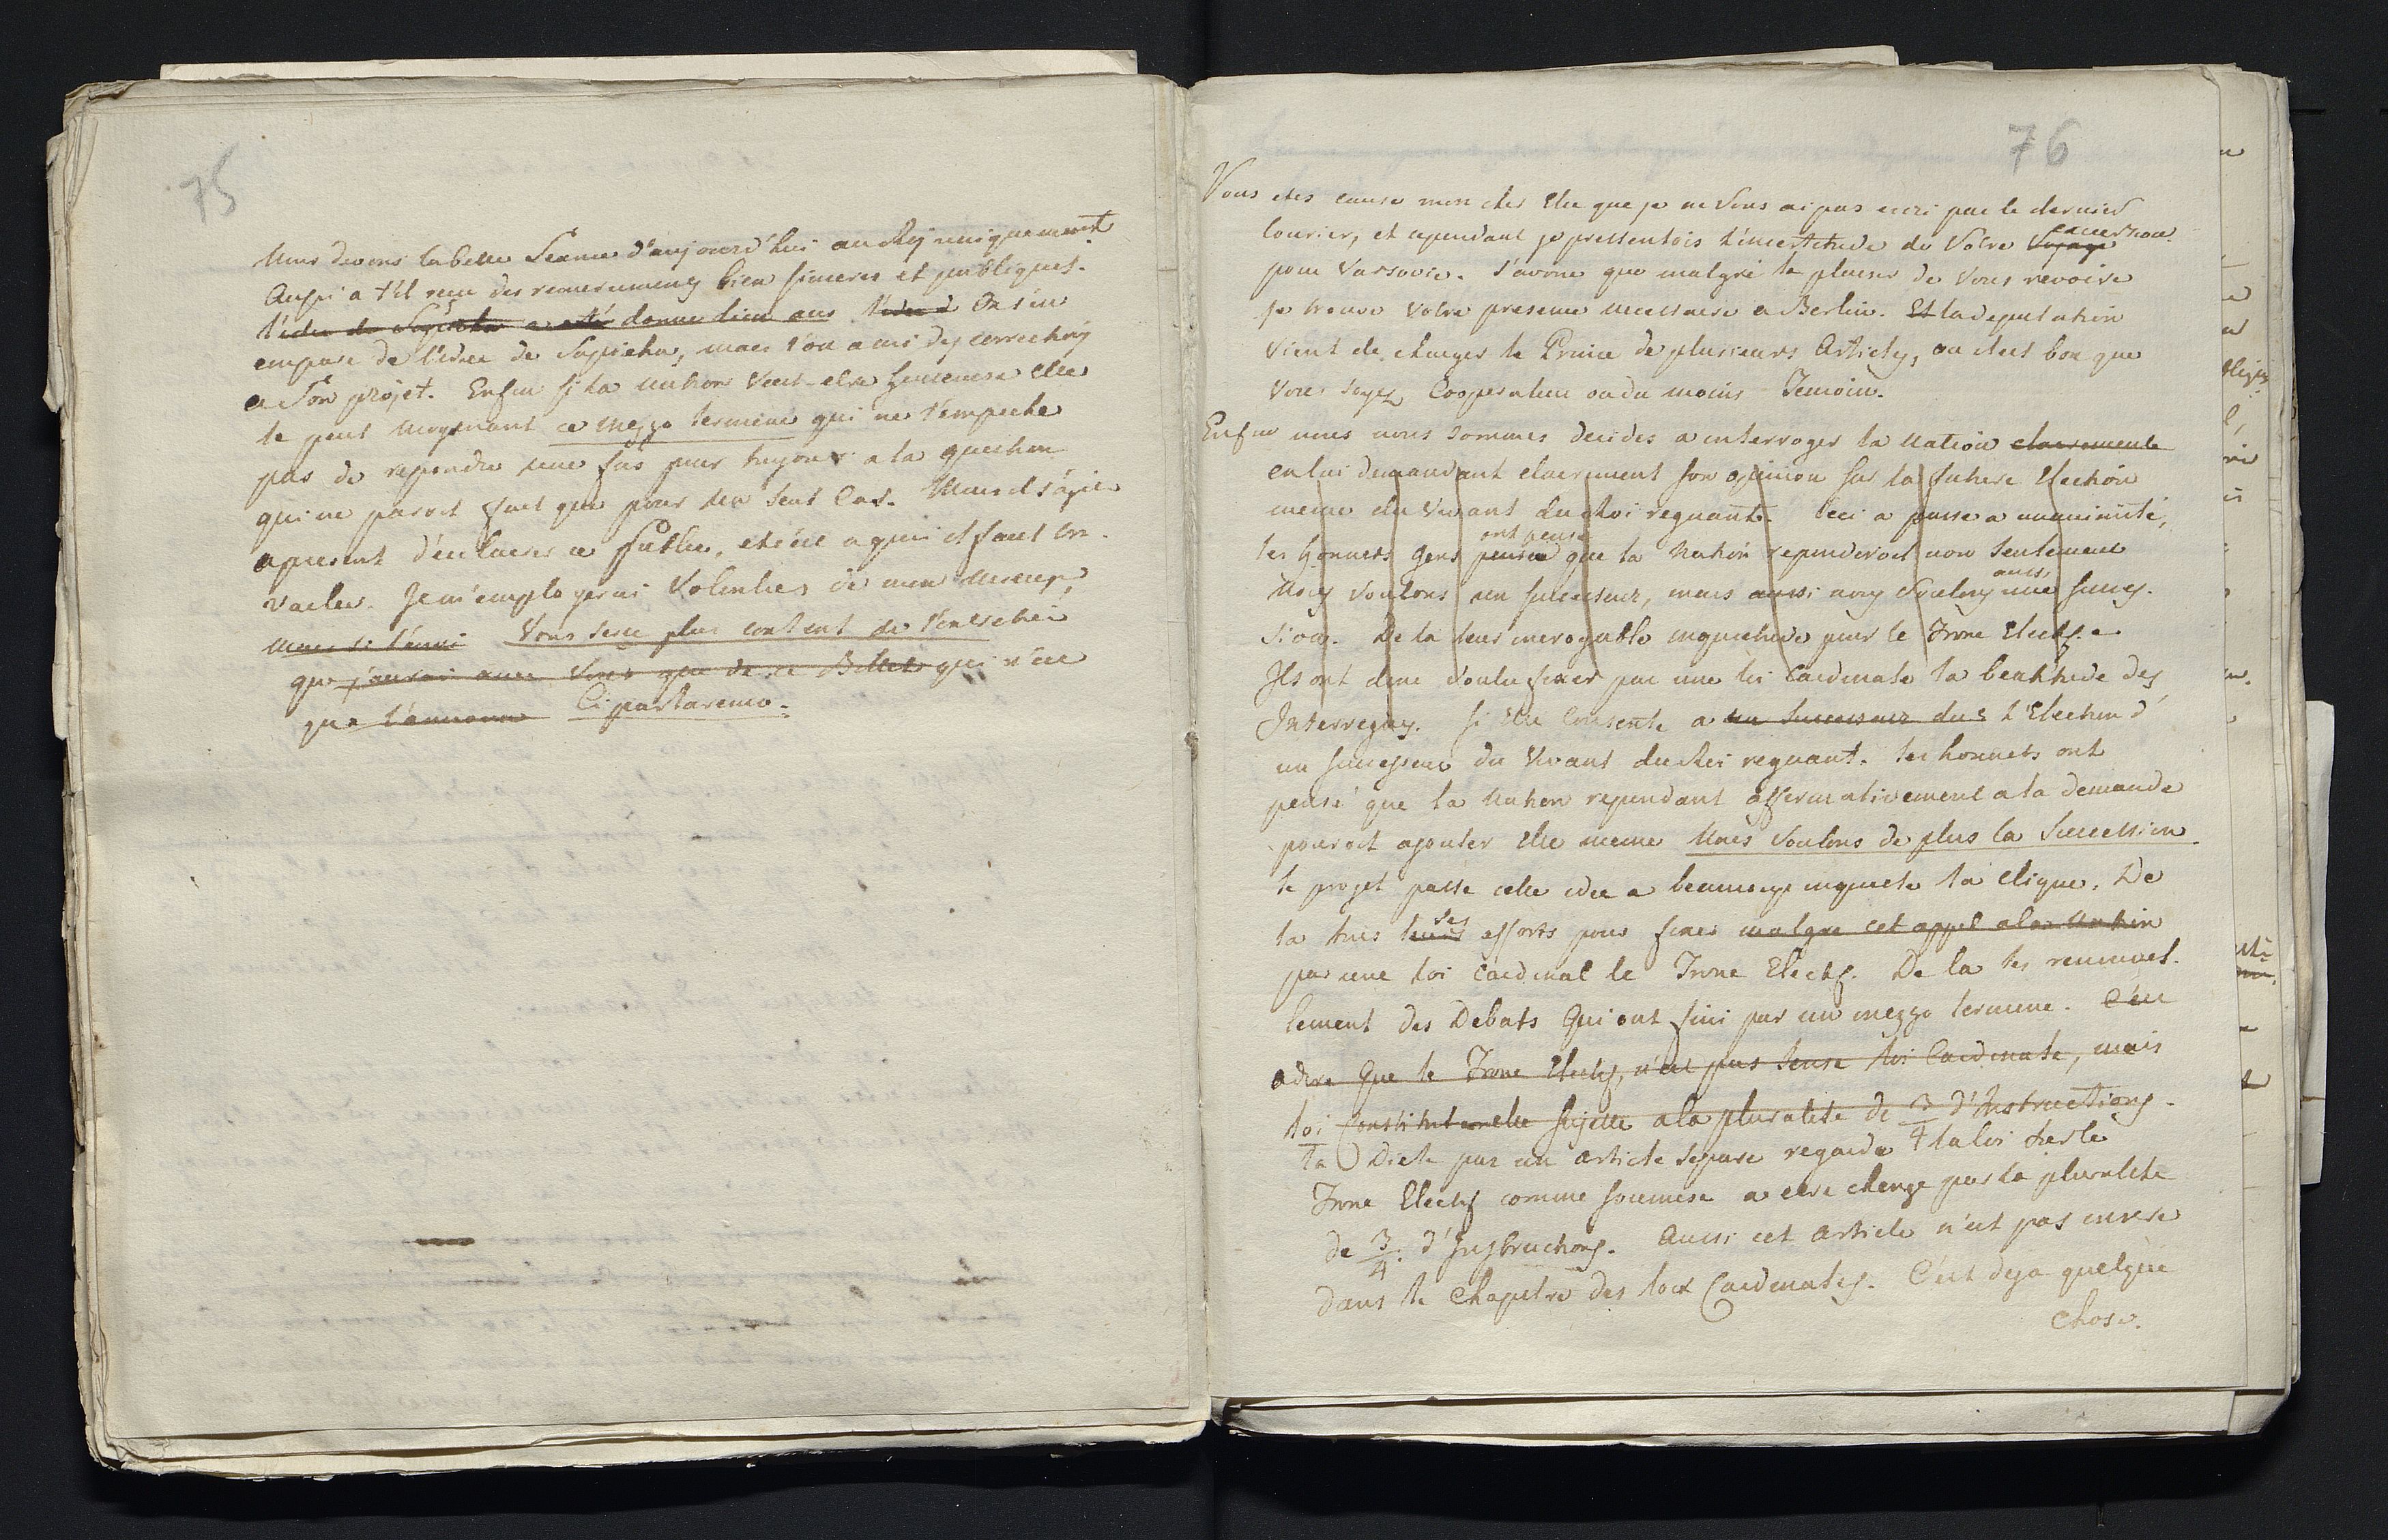 75
Nous devons la belle Seance d'aujourd'hui au Roy uniquement
Aussi a t'il reçu des remercimens bien sinceres et publiques.
l'idée de Sapieha a été donne lieu aux l'idée d On s'en
empare de l'idée de Sapieha, mais l'on a mis des corrections
a Son projet. Enfin si la nation veut etre heureuse elle
le peut moyenant ce mezzo termine qui ne l'empeche
pas de repondre une fois pour toujours a la question
qui ne paroit fait que pour un seul Cas. Mais il s'agit
apresent d'eclairer ce Public, et c'est a quoi il faut tra-
vailer. Je m'employerai Volontiers de mon mieux,
Mais si Vous serez plus content de l'entretien
que j'aurai avec Vous que de ce Billet qui n'est
que l'annonce Ci parlaremo.
76
Vous etes cause mon cher Elie que je ne Vous ai pas ecri par le dernier
Courier, et cependant je pressentois l'incertitude de Votre Voyage excursion
pour Varsovie. J'avoue que malgré le plaisir de Vous revoire
je trouve Votre presence necessaire a Berlin. Et la deputation
vient de charger le Prince de plusieurs Articles, ou il est bon que
vous soyez Cooperateur ou du moins Temoin.
Enfin nous nous sommes decides a interroger la Nation clairemente
en lui demandant clairement son opinion sur la future Election
meme du Vivant du Roi regnant. Ceci a passe a unanimité,
les honnets Gens pensen ont pensé que la Nation reponderoit non seulement
Nous voulons un successeur, mais aussi nous voulons aussi une succes-
sion. De la leur incroyable inquietude pour le Trone Electif.
Ils ont donc voulu fixer par une loi Cardinale la beatitude des
Interregnes. Si Elle Consente a un Successeur du l'Election d'
un successeur du Vivant du Roi regnant. les honnets ont
pensé que la Nation repondant affirmativement a la demande
pouroit ajouter Elle meme Nous Voulons de plus la Succession.
le projet passe cette idee a beaucoup inquieté la clique. De
la tous leurs ses efforts pour fixer malgré cet appel a la Nation
par une loi Cardinal le Trone Electif. De la les renouvel-
lement des Debats Qui ont fini par un mezzo termine. C'est
adire Que le Trone Electif, n'est pas sense loi Cardinale, mais
loi Constitutionelle sujette a la pluralité de 3/4 d'Instructions.
la Diete par un article separe regarde la loi sur le
Trone Electif comme soumise a etre change par la pluralité
de 3/4. d'Instructions. Aussi cet article n'est pas inseré
dans le Chapitre des loix Cardinales. C'est deja quelque
chose.